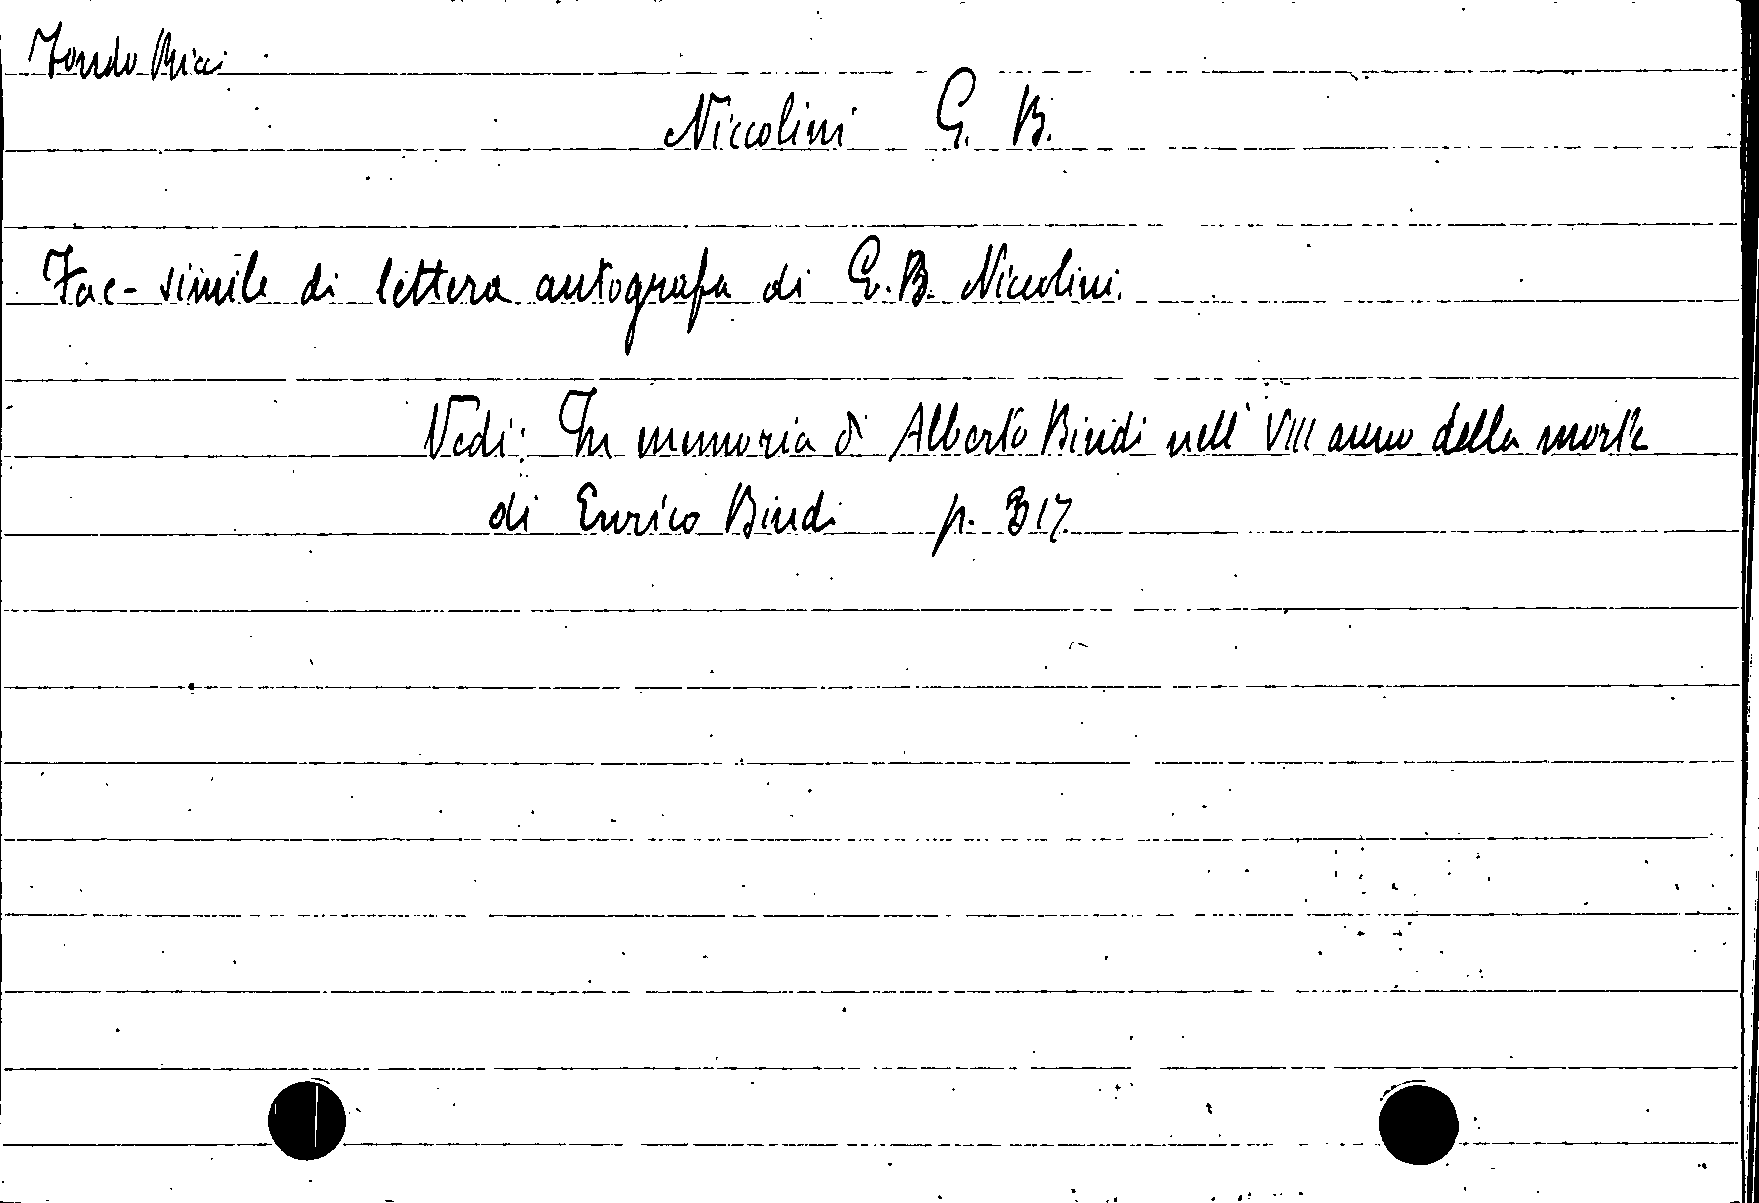 Fondo Ricci
Niccolini G. B.
Fac-simile di lettera autografa di G. B. Niccolini.
Vedi: In memoria di Alberto Bindi nell' VIII anno della morte
di Enrico Bindi p. 317.